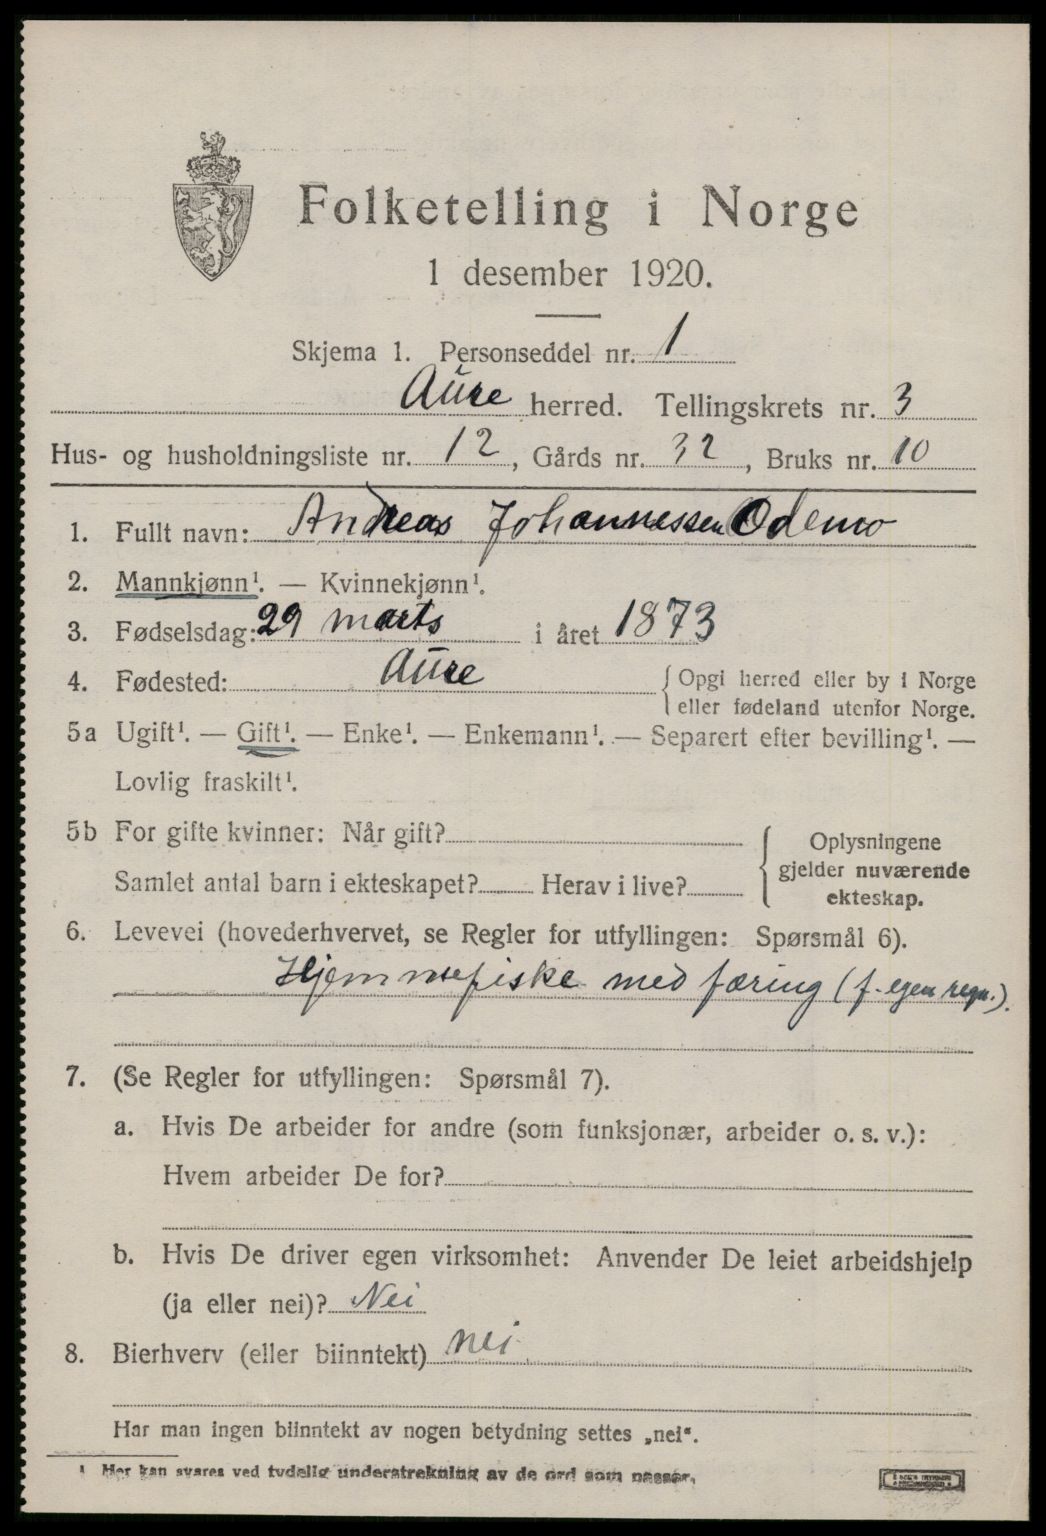 Folketelling i Norge
1 desember 1920.
Skjema 1. Personseddel nr. 1
Aure herred. Tellingskrets nr. 3
Hus- og husholdningsliste nr. 12, Gårds nr. 32, Bruks nr. 10
1. Fullt navn: Andreas Johannessen Odemo
2. Mannkjønn¹. — Kvinnekjønn¹.
3. Fødselsdag: 29 marts i året 1873
4. Fødested: Aure { Opgi herred eller by i Norge
eller fødeland utenfor Norge.
5a Ugift¹. — Gift¹. — Enke¹. — Enkemann¹. — Separert efter bevilling¹. —
Lovlig fraskilt¹.
5b For gifte kvinner: Når gift?
Samlet antal barn i ekteskapet? Herav i live?
{ Oplysningene
gjelder nuværende
ekteskap.
6. Levevei (hovederhvervet, se Regler for utfyllingen: Spørsmål 6).
Hjemmefiske med færing (f. egen regn.).
7. (Se Regler for utfyllingen: Spørsmål 7).
a. Hvis De arbeider for andre (som funksjonær, arbeider o. s. v.):
Hvem arbeider De for?
b. Hvis De driver egen virksomhet: Anvender De leiet arbeidshjelp
(ja eller nei)? Nei
8. Bierhverv (eller biinntekt) nei
Har man ingen biinntekt av nogen betydning settes „nei“.
¹ Her kan svares ved tydelig understrekning av de ord som passer.